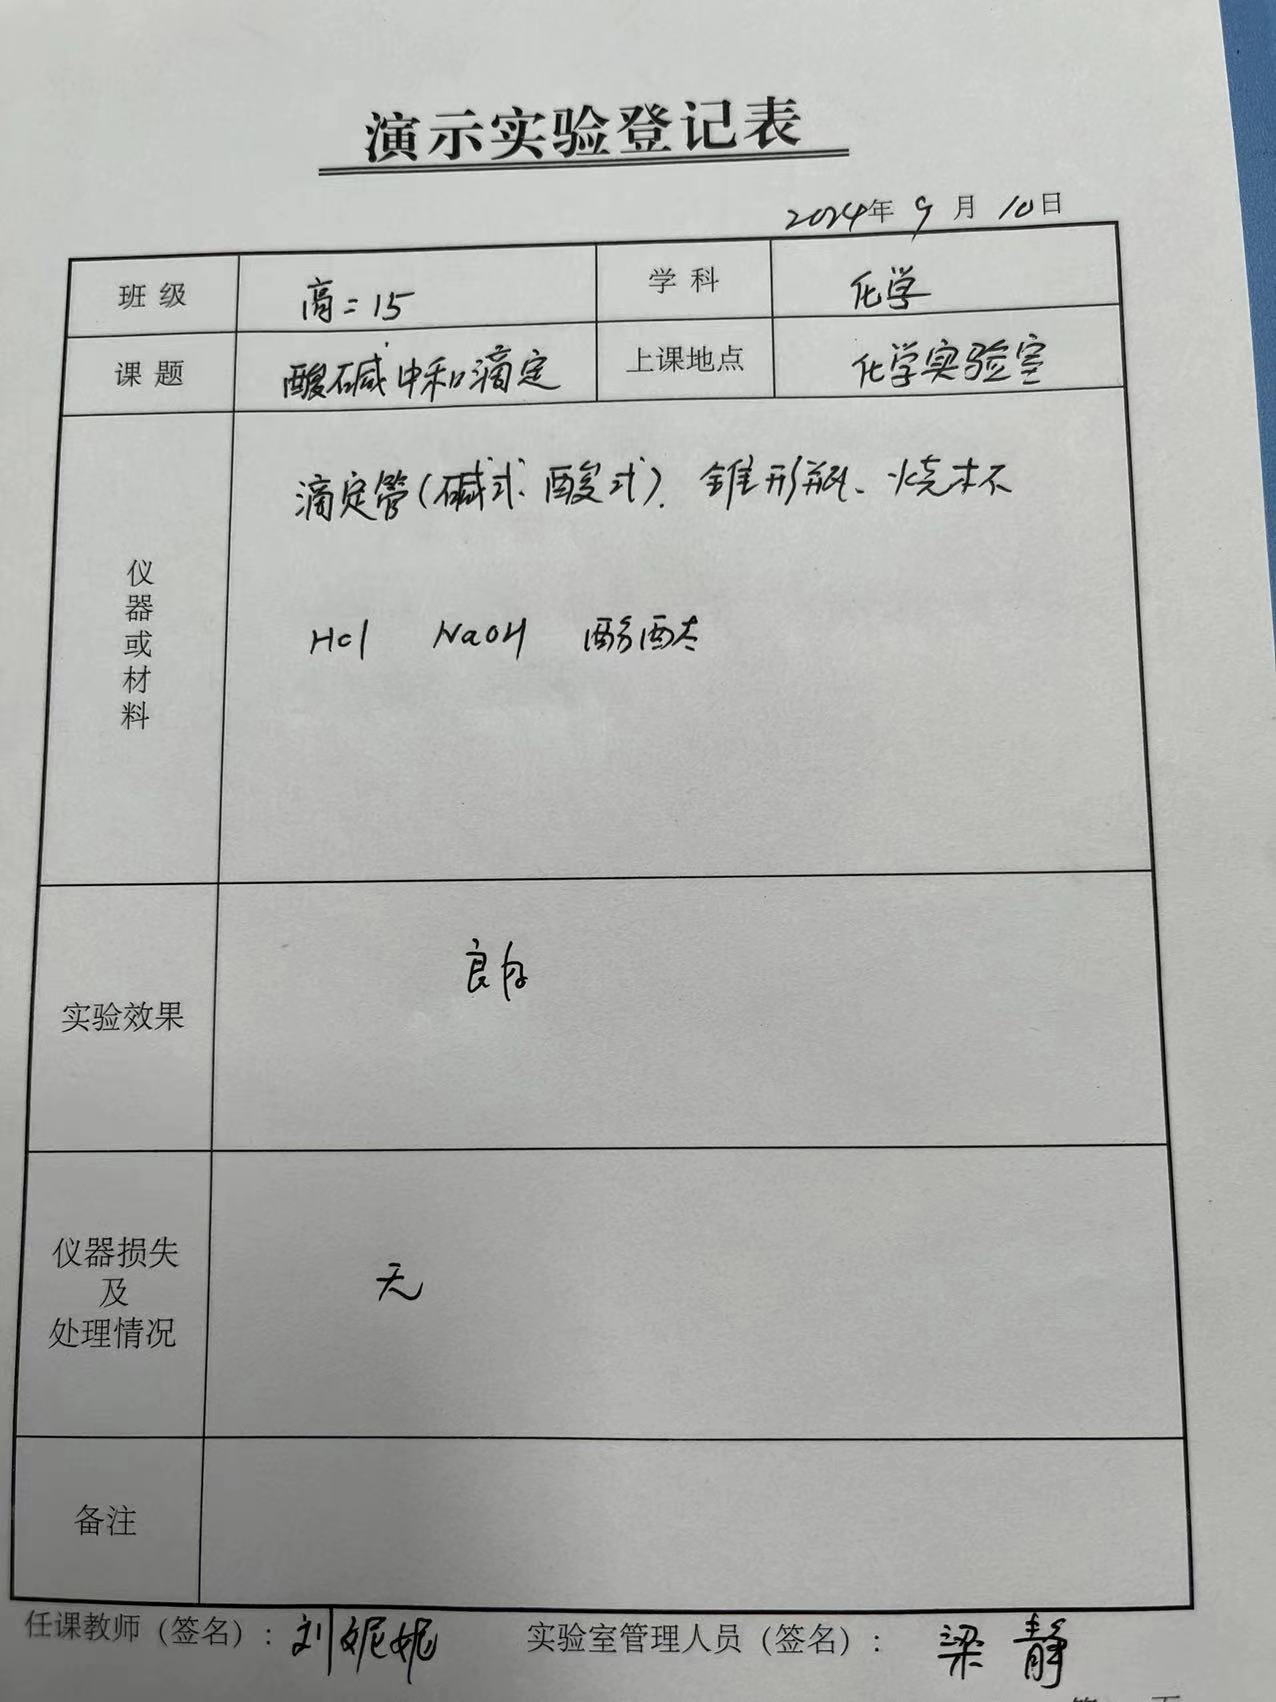 演示实验登记表
2024年 9 月 10日
班级 高二15 学科 化学
课题 酸碱中和滴定 上课地点 化学实验室
仪器或材料
滴定管(碱式、酸式)、锥形瓶、烧杯
HCl NaOH 酚酞
实验效果 良好
仪器损失
及
处理情况
无
备注
任课教师（签名）：刘妮妮 实验室管理人员（签名）：梁静